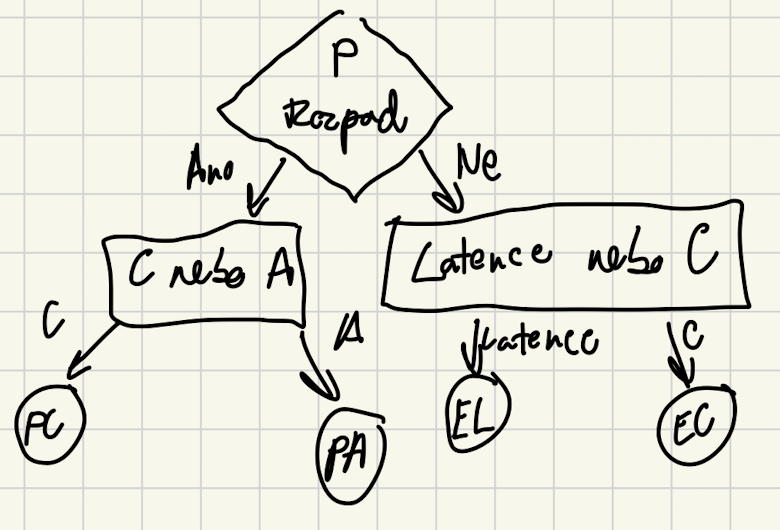 P
Rozpad
Ano
Ne
C nebo A
Latence nebo C
C
A
Latence
C
PC
PA
EL
EC